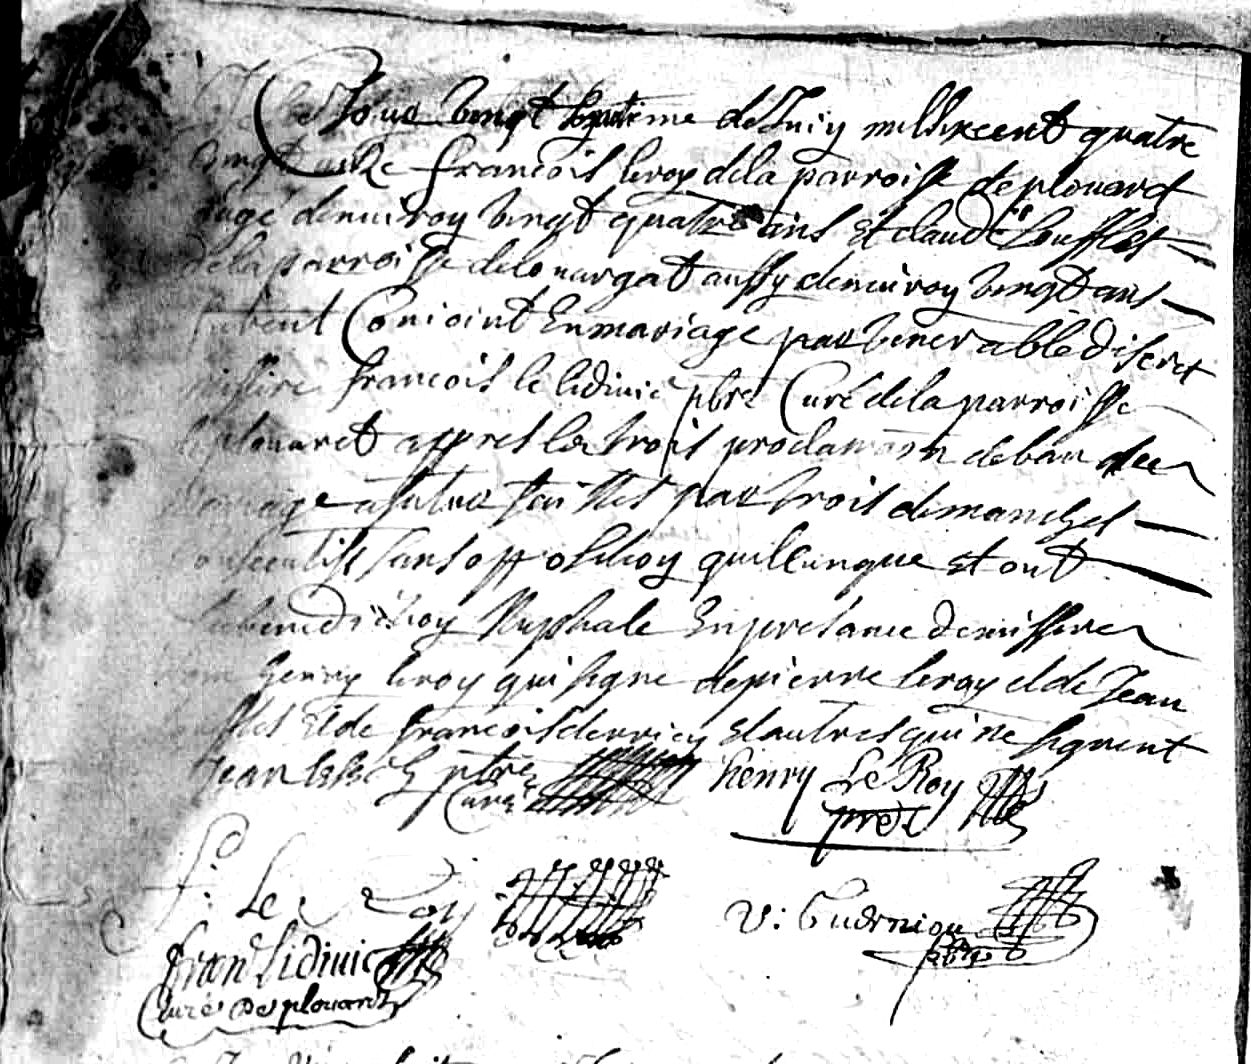 Ce Jour vingt septieme de Juin mil six cent quatre
vingt onze francois leroy de la parroisse de plouaret
aagé denuiroy vingt quatre ans Et claude Soufflet
de la parroisse de louargat aussy denuiroy vingt ans
furent Conioint En mariage par venerable et discret
missire francois le lidiuic pbre Curé de la parroisse
de plouaret appres les trois proclamaon de ban de
mariage faittes par trois dimanches
consecutifs sans oppositioy quelcunque et ont
la benedictioy Nuptiale En presance de missire
henry leroy qui signe de pierre leroy et de Jean
soufflet Et de francois derrien et autres qui ne signent
Jean pbre henry Le Roy
Curé pre
f: Le Roy v: Guerniou
fran Lidiuic pbre
Curé De plouaret